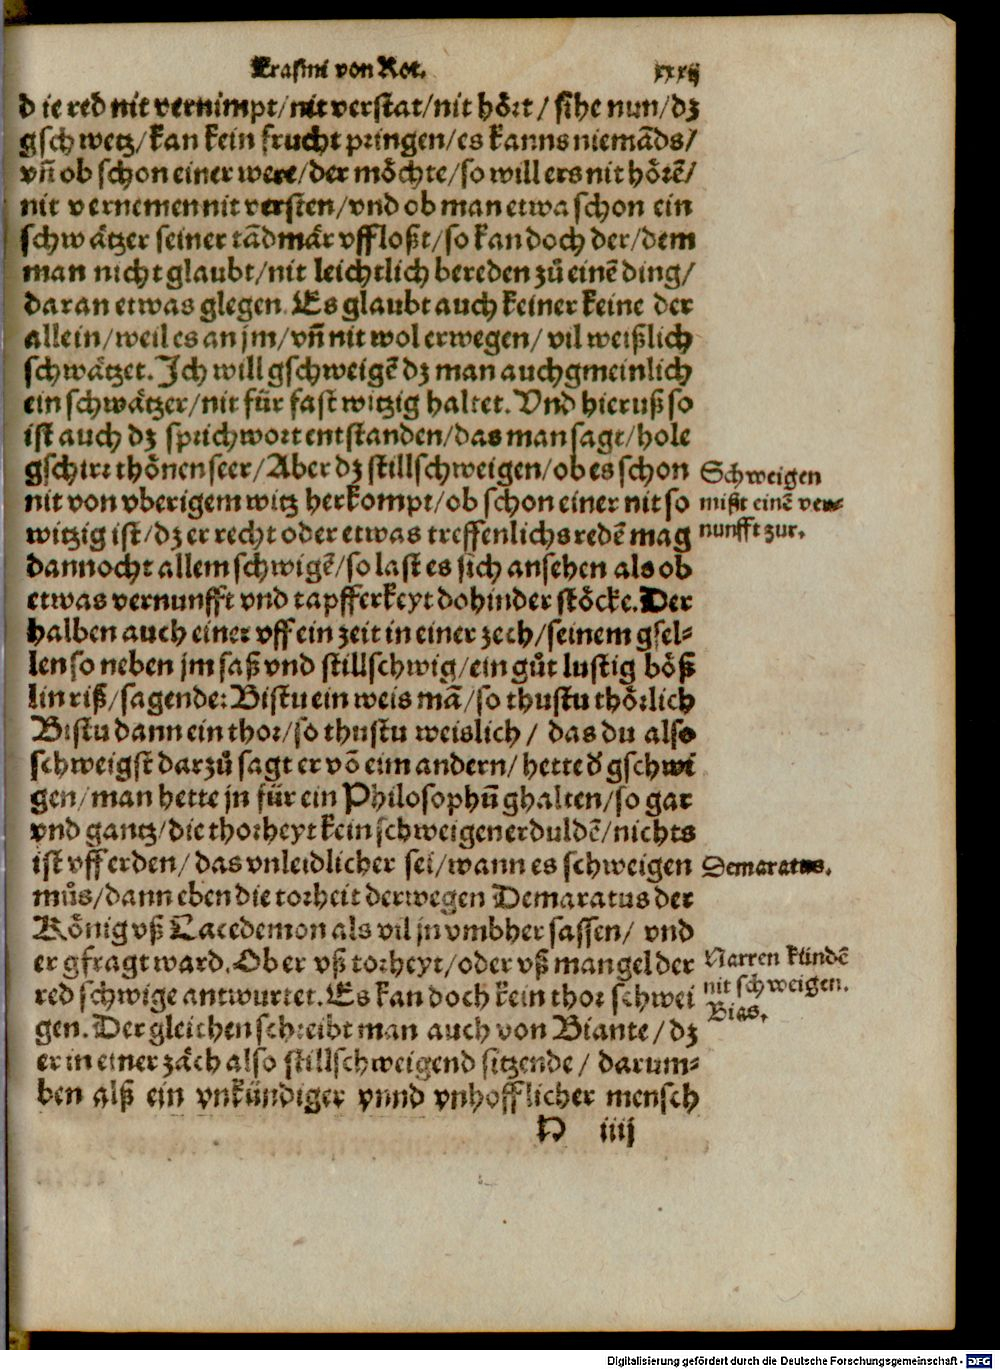 Erasmi von Rot. xxxij
d ie red nit vernimpt/nit verstat/nit hoͤrt / sihe nun/dz
gschwetz/kan kein frucht pringen/es kanns niemãds/
vñ ob schon einer were/der moͤchte/so will ers nit hoͤrẽ/
nit vernemen nit versten/vnd ob man etwa schon ein
schwaͤtzer seiner tãdmaͤr vffloßt/so kan doch der/dem
man nicht glaubt/nit leichtlich bereden zů einẽ ding/
daran etwas glegen. Es glaubt auch keiner keine der
allein/weil es an jm/vñ nit wol erwegen/ vil weißlich
schwaͤtzet. Jch will gschweigẽ dz man auch gmeinlich
ein schwaͤtzer/nit für fast witzig haltet. Vnd hieruß so
ist auch dz sprichwort entstanden/das man sagt/hole
gschirr thoͤnen seer/Aber dz stillschweigen/ob es schon
nit von vberigem witz herkompt/ob schon einer nit so
witzig ist/dz er recht oder etwas treffenlichs redẽ mag
dannocht allem schwigẽ/so last es sich ansehen als ob
etwas vernunfft vnd tapfferkeyt dohinder stoͤcke. Der
halben auch einer vff ein zeit in einer zech/seinem gsel⸗
len so neben jm saß vnd stillschwig/ein gůt lustig boͤß
lin riß/sagende: Bistu ein weis mã/so thustu thoͤrlich
Bistu dann ein thor/so thustu weislich / das du also
schweigst darzů sagt er võ eim andern/hette d̾ gschwi
gen/man hette jn für ein Philosophũ ghalten/so gar
vnd gantz/die thorheyt kein schweigen erduldẽ/nichts
ist vff erden/ das vnleidlicher sei/wann es schweigen
můs/dann eben die torheit derwegen Demaratus der
Koͤnig vß Lacedemon als vil jn vmbher sassen/ vnd
er gfragt ward. Ob er vß torheyt/oder vß mangel der
red schwige antwurtet. Es kan doch kein thor schwei
gen. Der gleichen schreibt man auch von Biante/dz
er in einer zaͤch also stillschweigend sitzende / darum⸗
ben alß ein vnkündiger vnnd vnhofflicher mensch
D iiij
Schweigen
mist einẽ ver⸗
nunfft zur.
Demaratus.
Narren kündẽ
nit schweigen.
Bias.
Digitalisierung gefördert durch die Deutsche Forschungsgemeinschaft - DFG